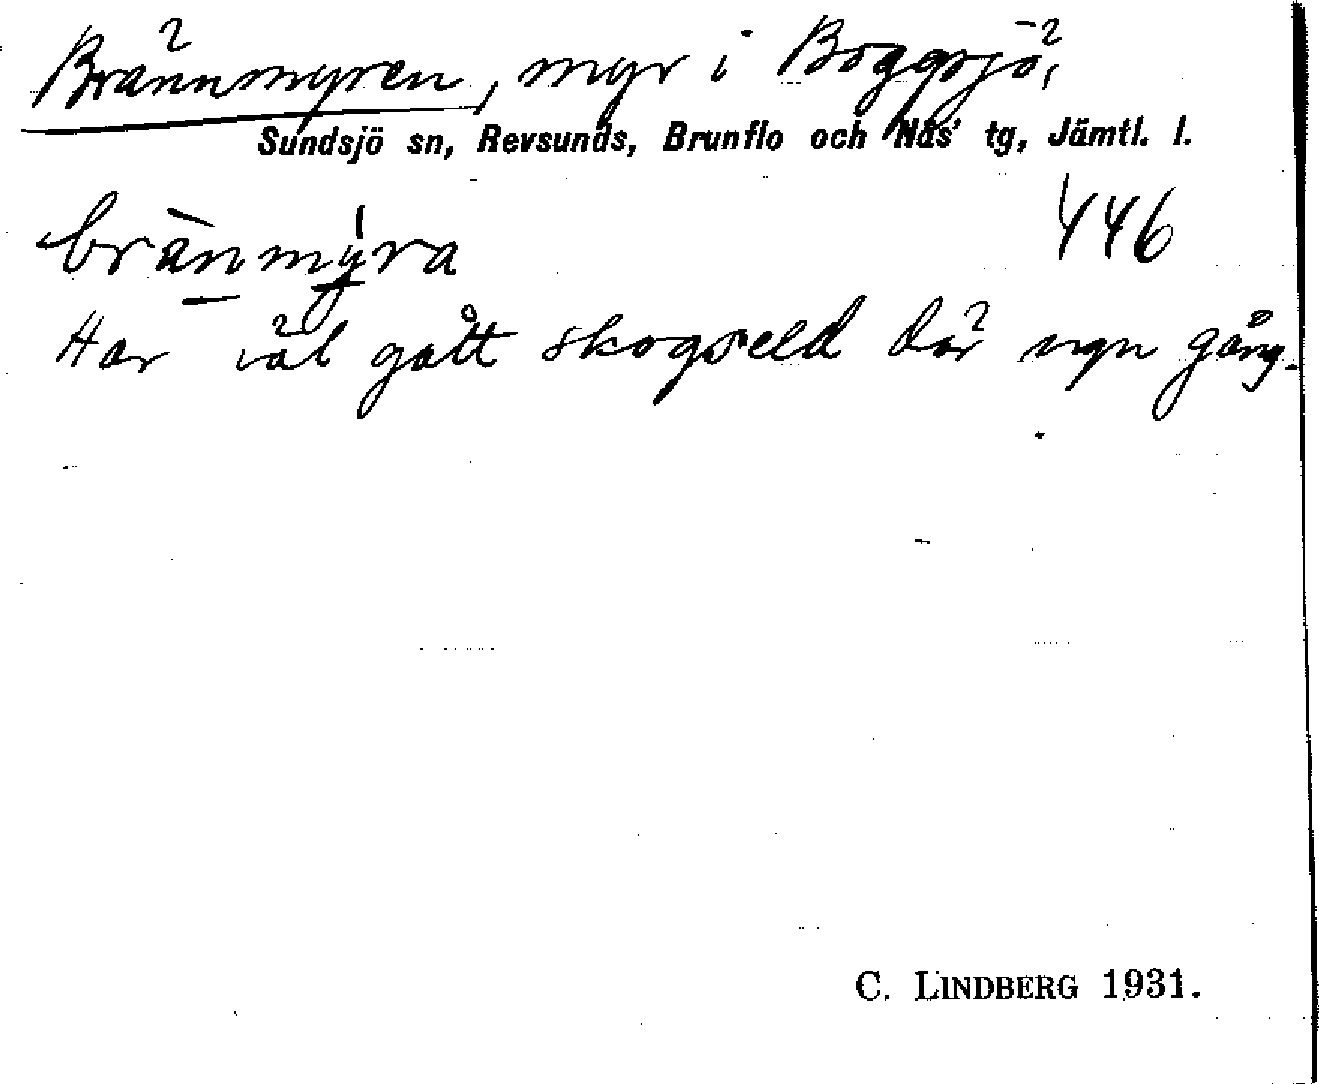 Brännmyren, myr i Boggsjö,
Sundsjö sn, Revsunds, Brunflo och Näs' tg, Jämtl. l.
brànmýra 446
Har väl gått skogseld där ngn gång.
C. LINDBERG 1931.